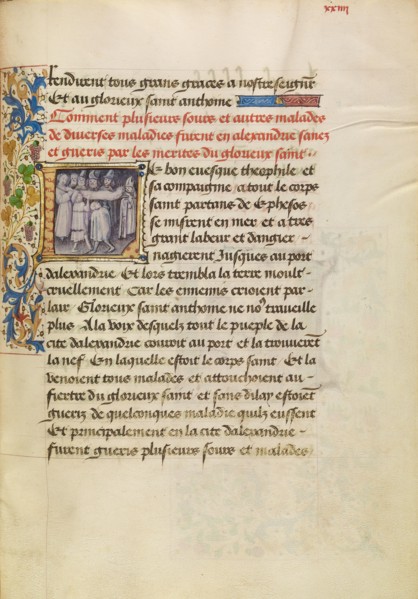 xxiiii
Rendirent tous grans graces a nostre seignr
Et au glorieux saint anthome
Comment plusieurs sours et autres malades
de diverses maladies furent en alexandrie sanez
et gueris par les merites du glorieux saint
Le bon euesque theophile et
sa compaignie a tout le corps
saint partans de Ephesos
se misrent en mer et a tres
grant labeur et dangier
nagierent Jusques au port
dalexandrie Et lors trembla la terre moult
cruellement Car les ennemis crioient par
lair Glorieux saint anthome ne no9 traueille
plus A la voix desquelz tout le pueple de la
cite dalexandrie couroit au port et la trouuerent
la nef En laquelle estoit le corps saint Et la
venoient tous malades et attouchoient au
fiertre du glorieux saint et sans dilay estoiet
gueriz de quelconques maladie quilz eussent
Et principalement en la cite dalexandrie
furent gueris plusieurs sours et malades